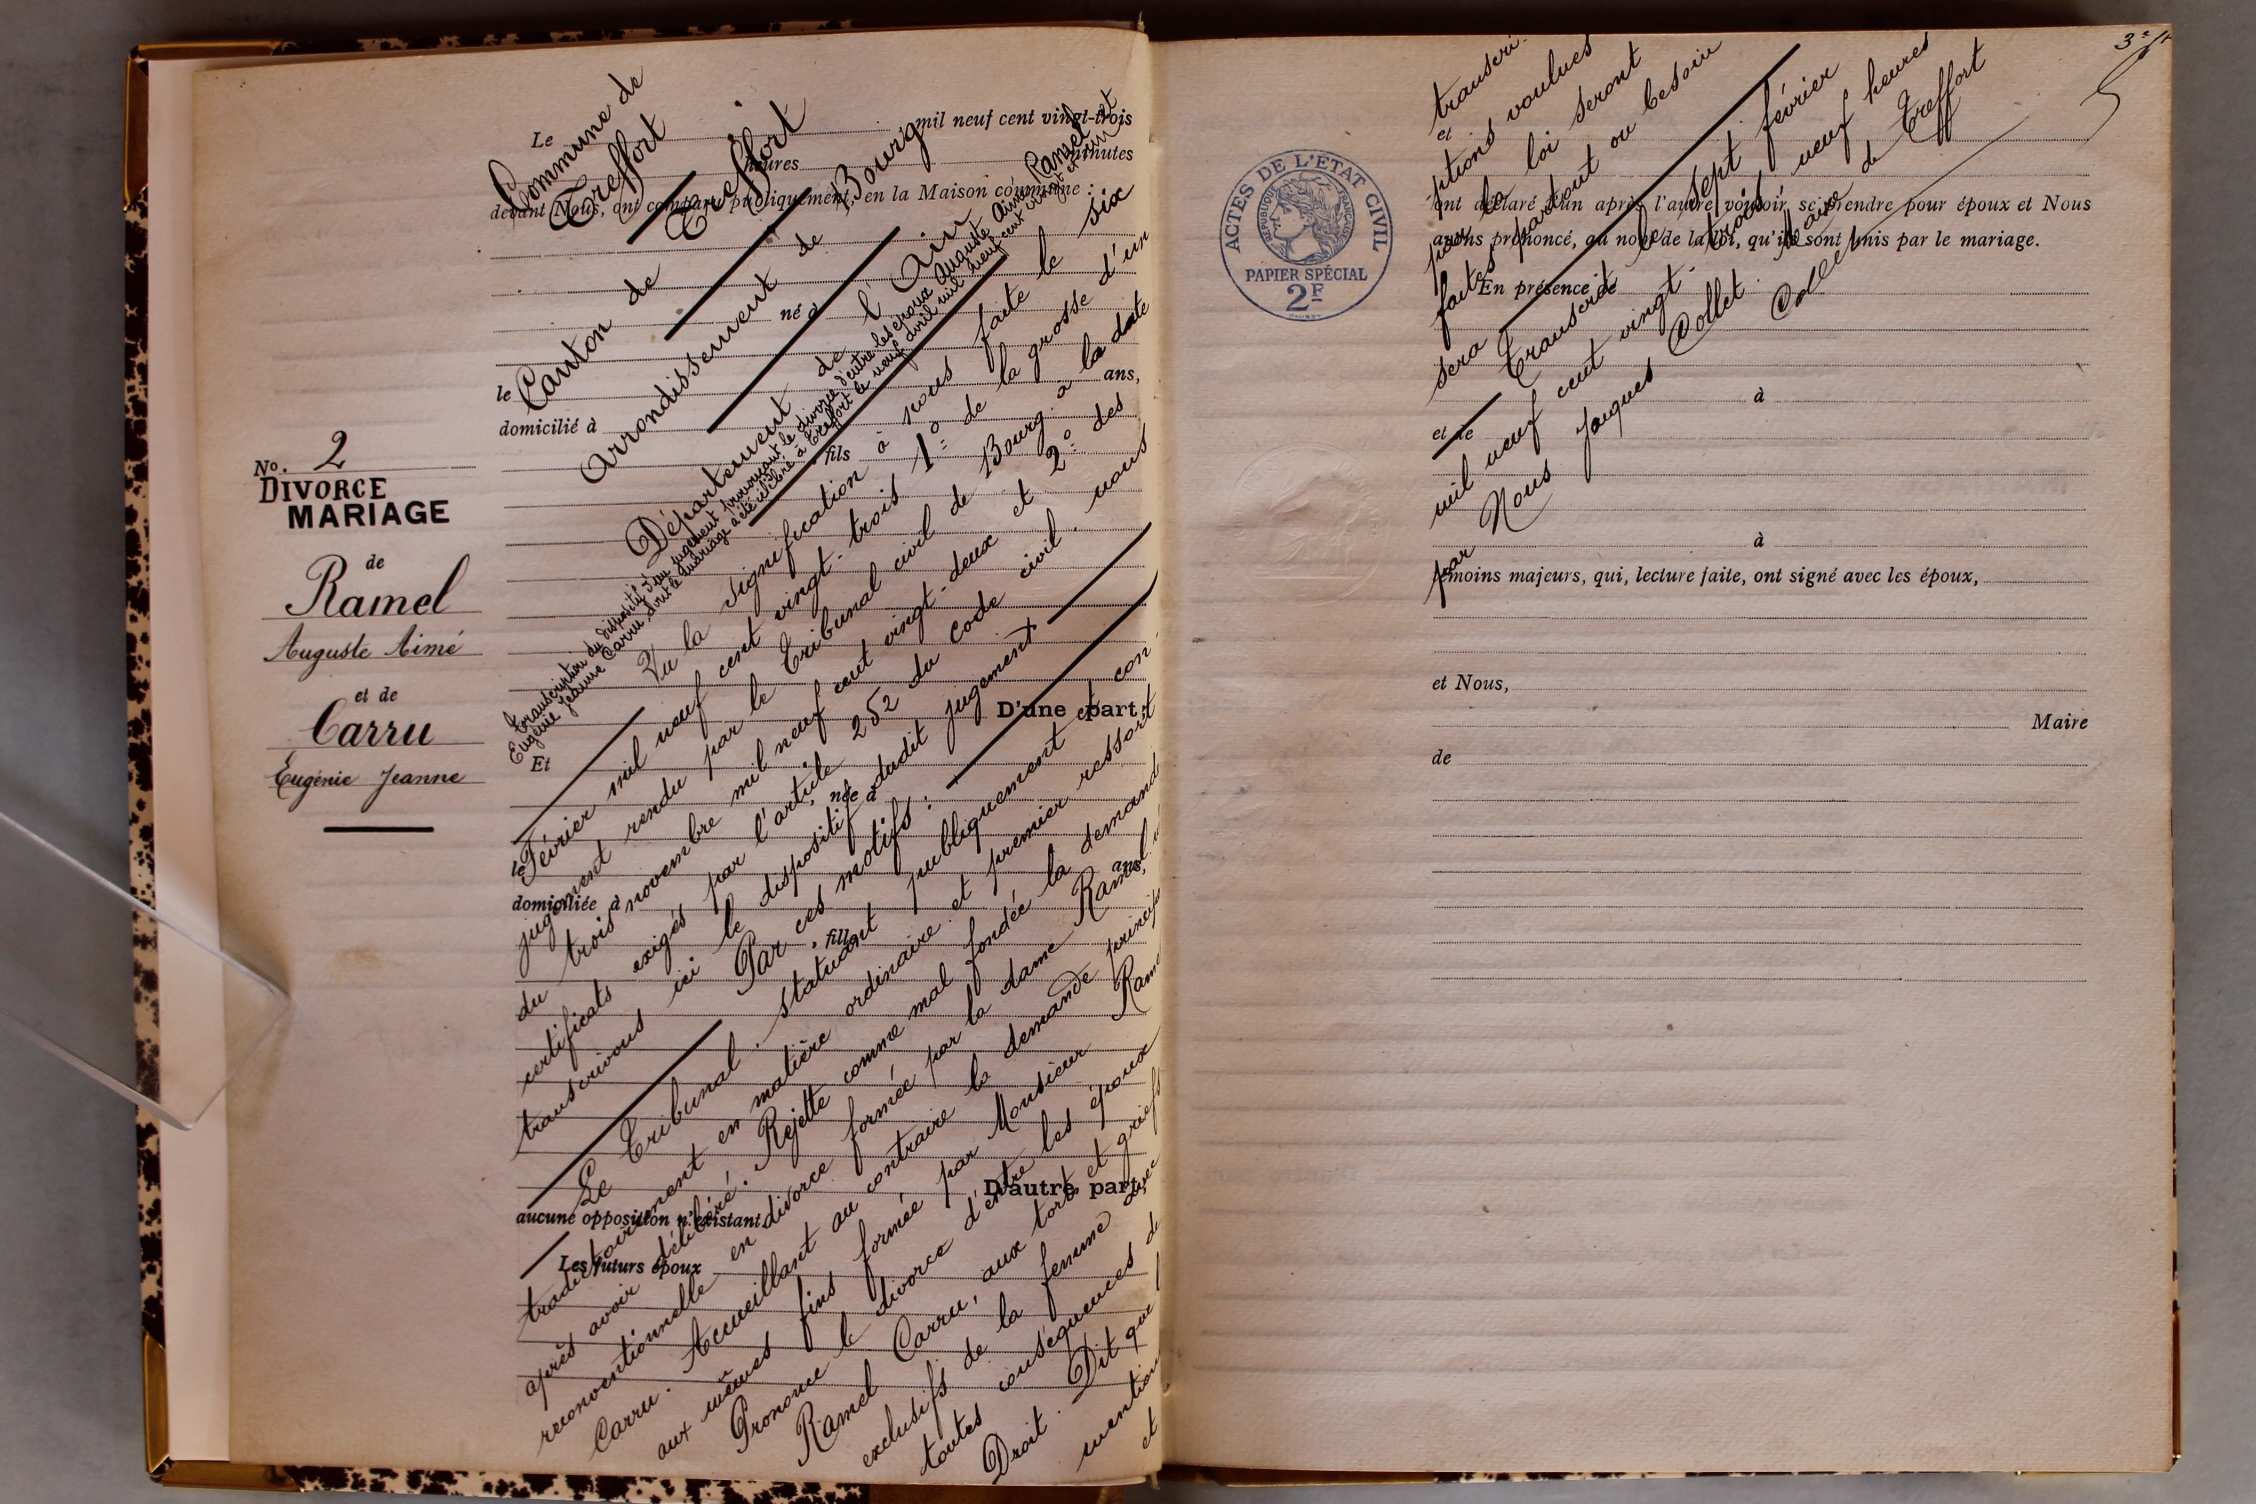 Le mil neuf cent vingt-trois
heures minutes
devant Nous, ont comparu publiquement, en la Maison commune :
né à
le
domicilié à ans,
fils
D'une part;
Et
née à
le
domiciliée à ans,
fille
D'autre part;
aucune opposition n'existant.
Les futurs époux
No. 2
DIVORCE
MARIAGE
de
Ramel
Auguste Aimé
et de
Carru
Eugénie Jeanne
Commune de
Treffort
Canton de Treffort
Arrondissement de Bourg
Département de l'Ain
Transcription du dispositif d'un jugement prononçant le divorce d'entre les époux Auguste Aimé Ramel et
Eugénie Jeanne Carru dont le mariage a été célébré à Treffort le neuf avril mil neuf cent vingt et un
Vu la signification à nous faite le six
Février mil neuf cent vingt-trois 1° de la grosse d'un
jugement rendu par le Tribunal civil de Bourg à la date
du trois novembre mil neuf cent vingt-deux et 2° des
certificats exigés par l'article 252 du code civil, nous
transcrivons ici le dispositif dudit jugement
Par ces motifs :
Le Tribunal, statuant publiquement et con-
tradictoirement en matière ordinaire et premier ressort
après avoir délibéré. Rejette comme mal fondée la demande
reconventionnelle en divorce formée par la dame Ramel née
Carru. Accueillant au contraire la demande principale
aux mêmes fins formée par Monsieur Ramel
Prononce le divorce d'entre les époux
Ramel Carru, aux torts et griefs
exclusifs de la femme avec
toutes conséquences de
Droit. Dit que
mention
et
3
ACTES DE L'ÉTAT CIVIL
RÉPUBLIQUE FRANÇAISE
PAPIER SPÉCIAL
2F
et
ont déclaré l'un après l'autre vouloir se prendre pour époux et Nous
avons prononcé, au nom de la loi, qu'ils sont unis par le mariage.
En présence de
à
et de
à
témoins majeurs, qui, lecture faite, ont signé avec les époux,
et Nous,
Maire
de
transcri-
ptions voulues
par la loi seront
faites partout où besoin
sera
Transcrit le sept février
mil neuf cent vingt-trois neuf heures
par Nous Jacques Collet Maire de Treffort
Collet